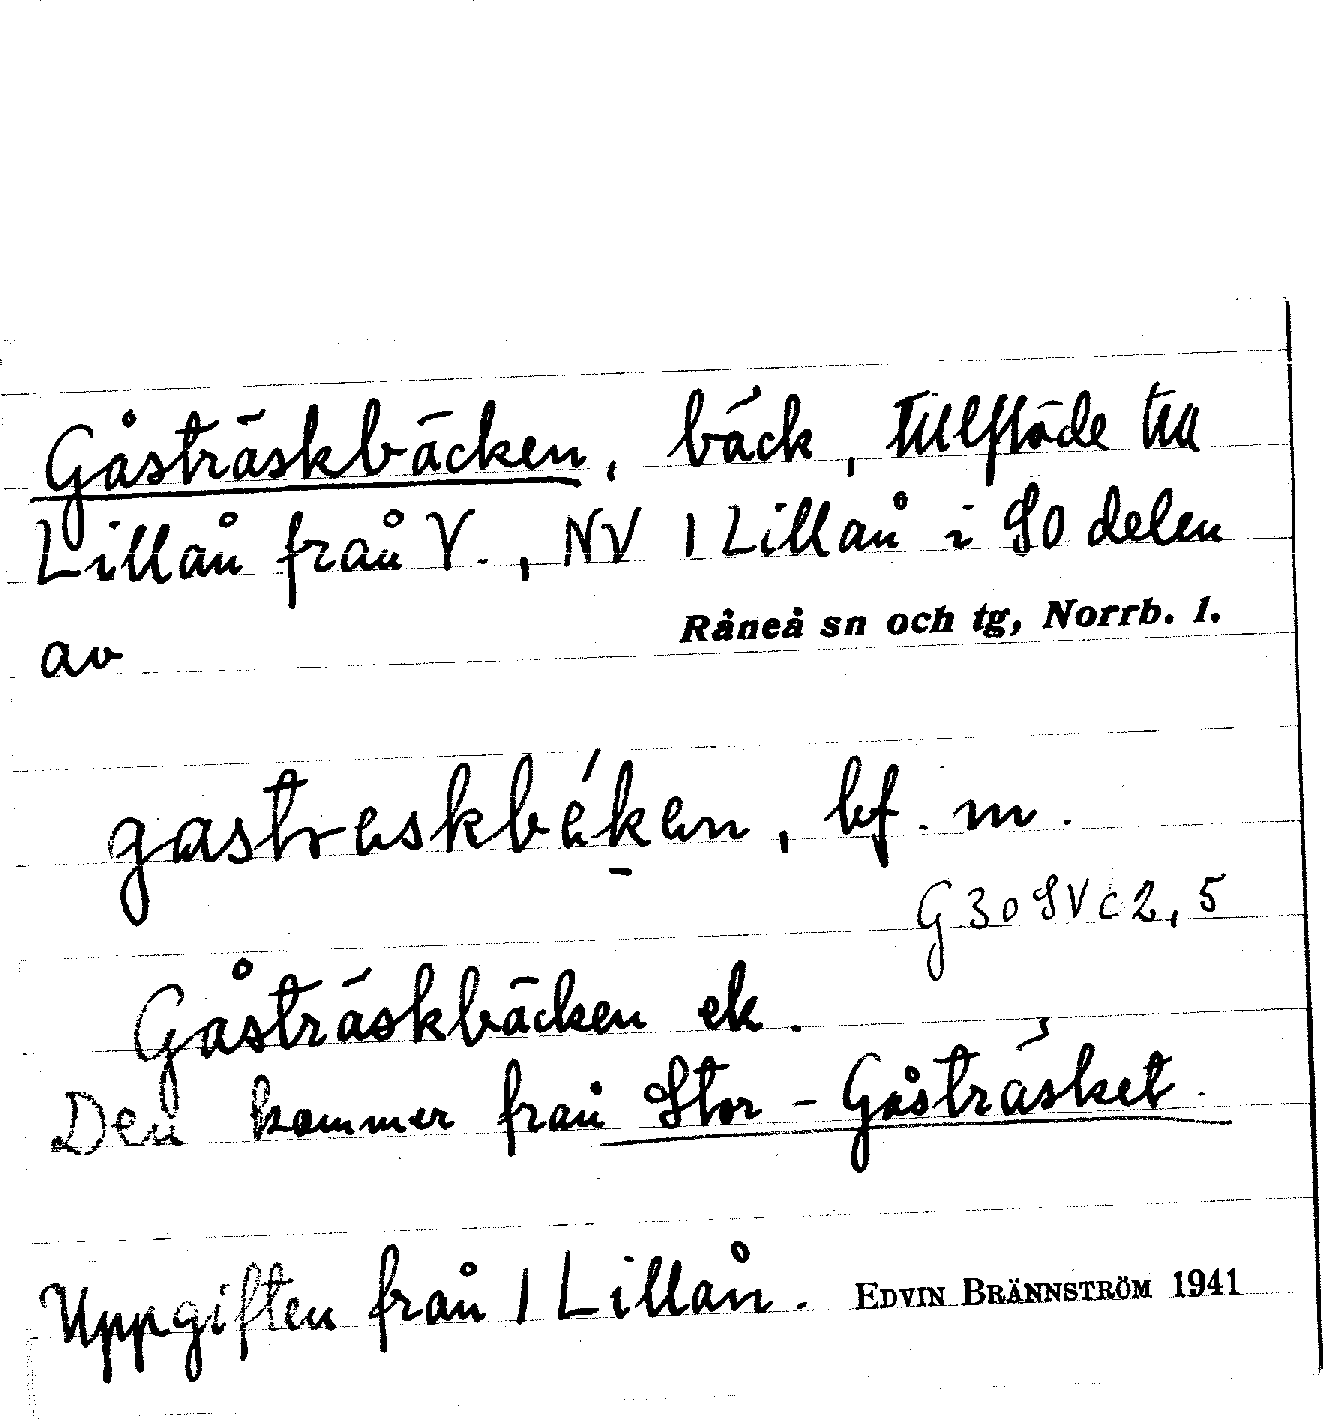 Gåsträskbäcken, bäck, tillflöde till
Lillån från V., NV 1 Lillån i SO delen
av Råneå sn och tg, Norrb. l.
gastreskbék̠en, bf. m.
G 30 SV c 2, 5
Gåsträskbäcken ek.
Den kommer från Stor-Gåsträsket.
Uppgiften från 1 Lillån. EDVIN BRÄNNSTRÖM 1941